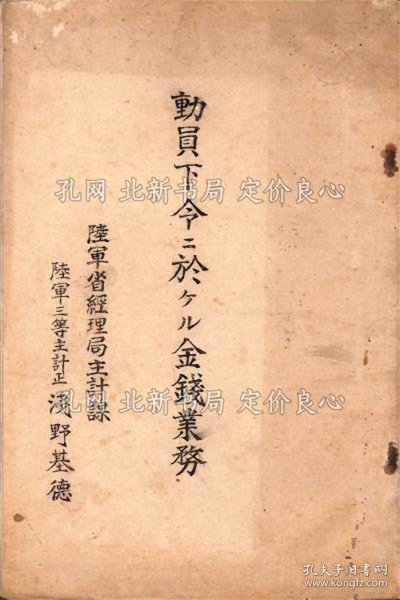 動員下令ニ於ケル金錢業務
陸軍省經理局主計課
陸軍三等主計正 淺野基德
孔网 北新书局 定价良心
孔网 北新书局 定价良心
孔夫子旧书网
book.kongfz.com